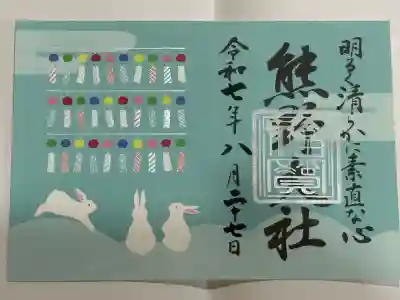 明るく清らかに素直な心
熊野神社
令和七年八月二十七日